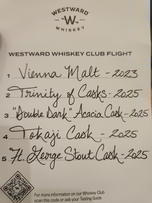 WESTWARD
W
WHISKEY
WESTWARD WHISKEY CLUB FLIGHT
1 Vienna Malt - 2023
2 Trinity of Casks - 2025
3 "Double Dark" Acacia Cask - 2025
4 Tokaji Cask - 2025
5 Ft. George Stout Cask - 2025
For more information on our Whiskey Club
scan this code or ask your Tasting Guide